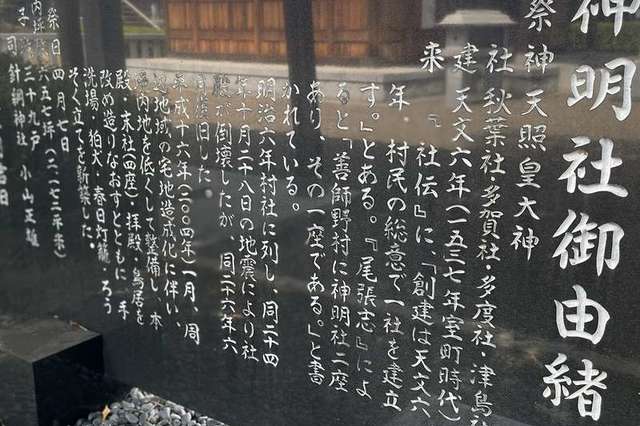 神明社御由緒
祭神 天照皇大神
社 秋葉社・多賀社・多度社・津島社
建 天文六年(一五三七年室町時代)
来 『社伝』に、「創建は天文六
年 村民の総意で一社を建立
す。」とある。『尾張志』によ
ると「善師野村に神明社二座
あり その一座である。」と書
かれている。
明治六年村社に列し、同二十四
年十月二十八日の地震により社
殿が倒壊したが、同二十六年六
月復旧した
平成十六年(二〇〇四年)一月、周
辺地域の宅地造成化に伴い、
境内地を低くして整備し、本
殿・末社(四座)・拝殿・鳥居を
改め造りなおすとともに、手
洗場・狛犬・春日灯籠・ろう
そく立てを新築した。
祭日 四月七日
六五七坪(二一七二平米)
三十九戸
司 針綱神社 小山正